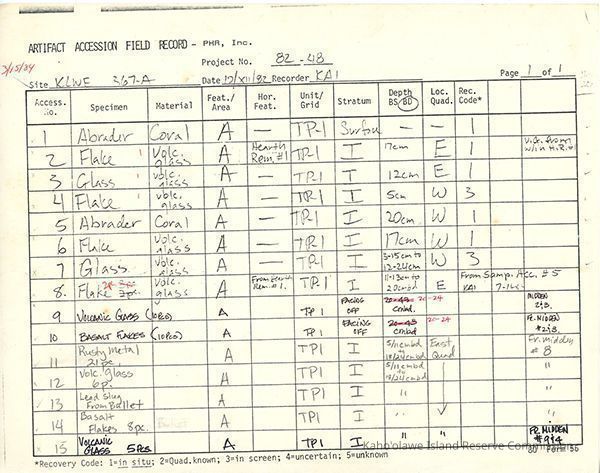 ARTIFACT ACCESSION FIELD RECORD - PHR, Inc.
3/15/84
Project No. 82-48
Site KLWE 367-A Date 12/XII/82 Recorder KAI Page 1 of 1
Access. No. Specimen Material Feat./Area Hor. Feat. Unit/Grid Stratum Depth BS/BD Loc. Quad. Rec. Code*
1 Abrader Coral A — TP-1 Surface — — 1
2 Flake Volc. glass A Hearth Rem. #1 TP-1 I 17cm E 1
3 Glass volc. glass A — TP-1 I 12cm E 1
4 Flake volc. glass A — TP-1 I 5cm W 3
5 Abrader Coral A — TP-1 I 20cm W 1
6 Flake volc. glass A — TP-1 I 17cm W 1
7 Glass volc. glass A — TP-1 I 3-15cm to 12-24cm W 3
8 Flake Volc. glass A From hearth Rem. #1 TP-1 I 11-13cm to 20cmbd E From Samp. Acc. #5 KAI
9 VOLCANIC GLASS (10PCS) A TP1 FACING OFF 20-43 cmbd. 20-24 MIDDEN
10 BASALT FLAKES (10PCS) A TP1 FACING OFF 20-43 cmbd 20-24 FR. MIDDEN
11 Rusty Metal 21pc. A TP1 I 5/11cmbd to 18/24cmbd East Quad Fr. midden #8
12 Volc. glass 6p. A TP1 I 5/11cmbd to 18/24cmbd "
13 Lead Slug From Bullet A TP1 I " "
14 Basalt Flakes 8pc. A TP1 I " "
15 VOLCANIC GLASS 5PCS A TP1 I FR. MIDDEN #9i4
Kaho'olawe Island Reserve Comm
*Recovery Code: 1=in situ; 2=Quad.known; 3=in screen; 4=uncertain; 5=unknown